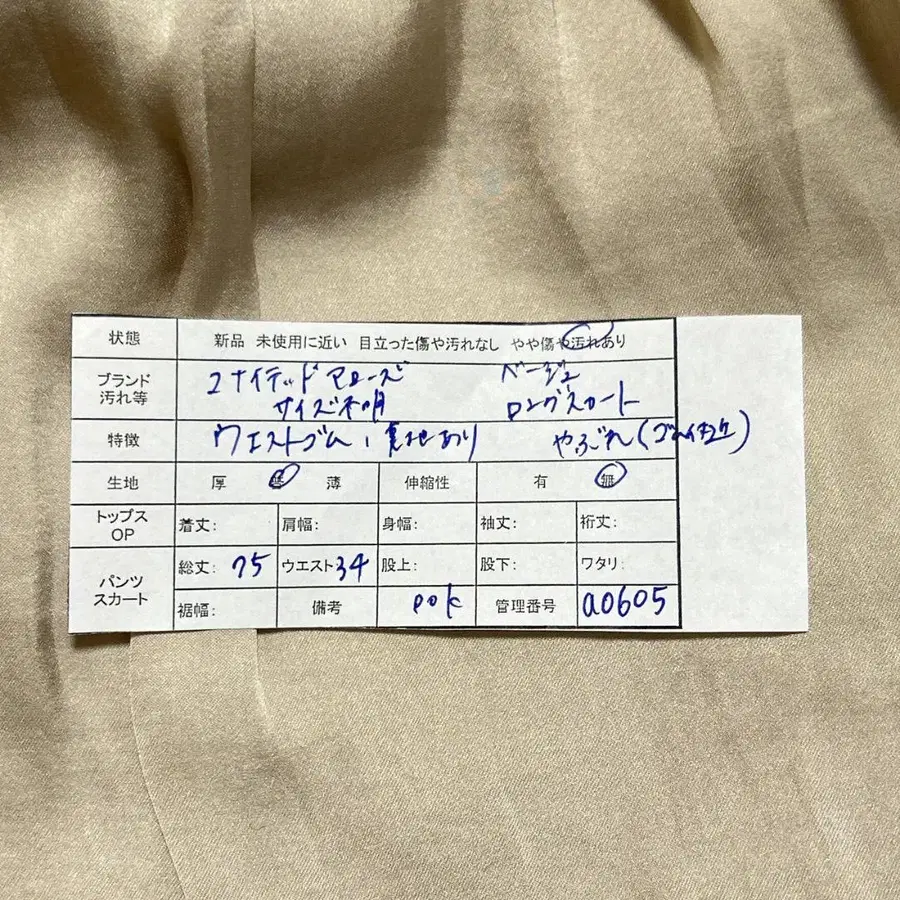 状態 新品 未使用に近い 目立った傷や汚れなし やや傷や汚れあり
ブランド ユナイテッドアローズ ベージュ
汚れ等 サイズ不明 ロングスカート
特徴 ウエストゴム、裏地あり やぶれ(ゴム付近)
生地 厚 薄 伸縮性 有 無
トップス
OP 着丈: 肩幅: 身幅: 袖丈: 裄丈:
パンツ
スカート 総丈: 75 ウエスト 34 股上: 股下: ワタリ:
裾幅: 備考 pok 管理番号 a0605